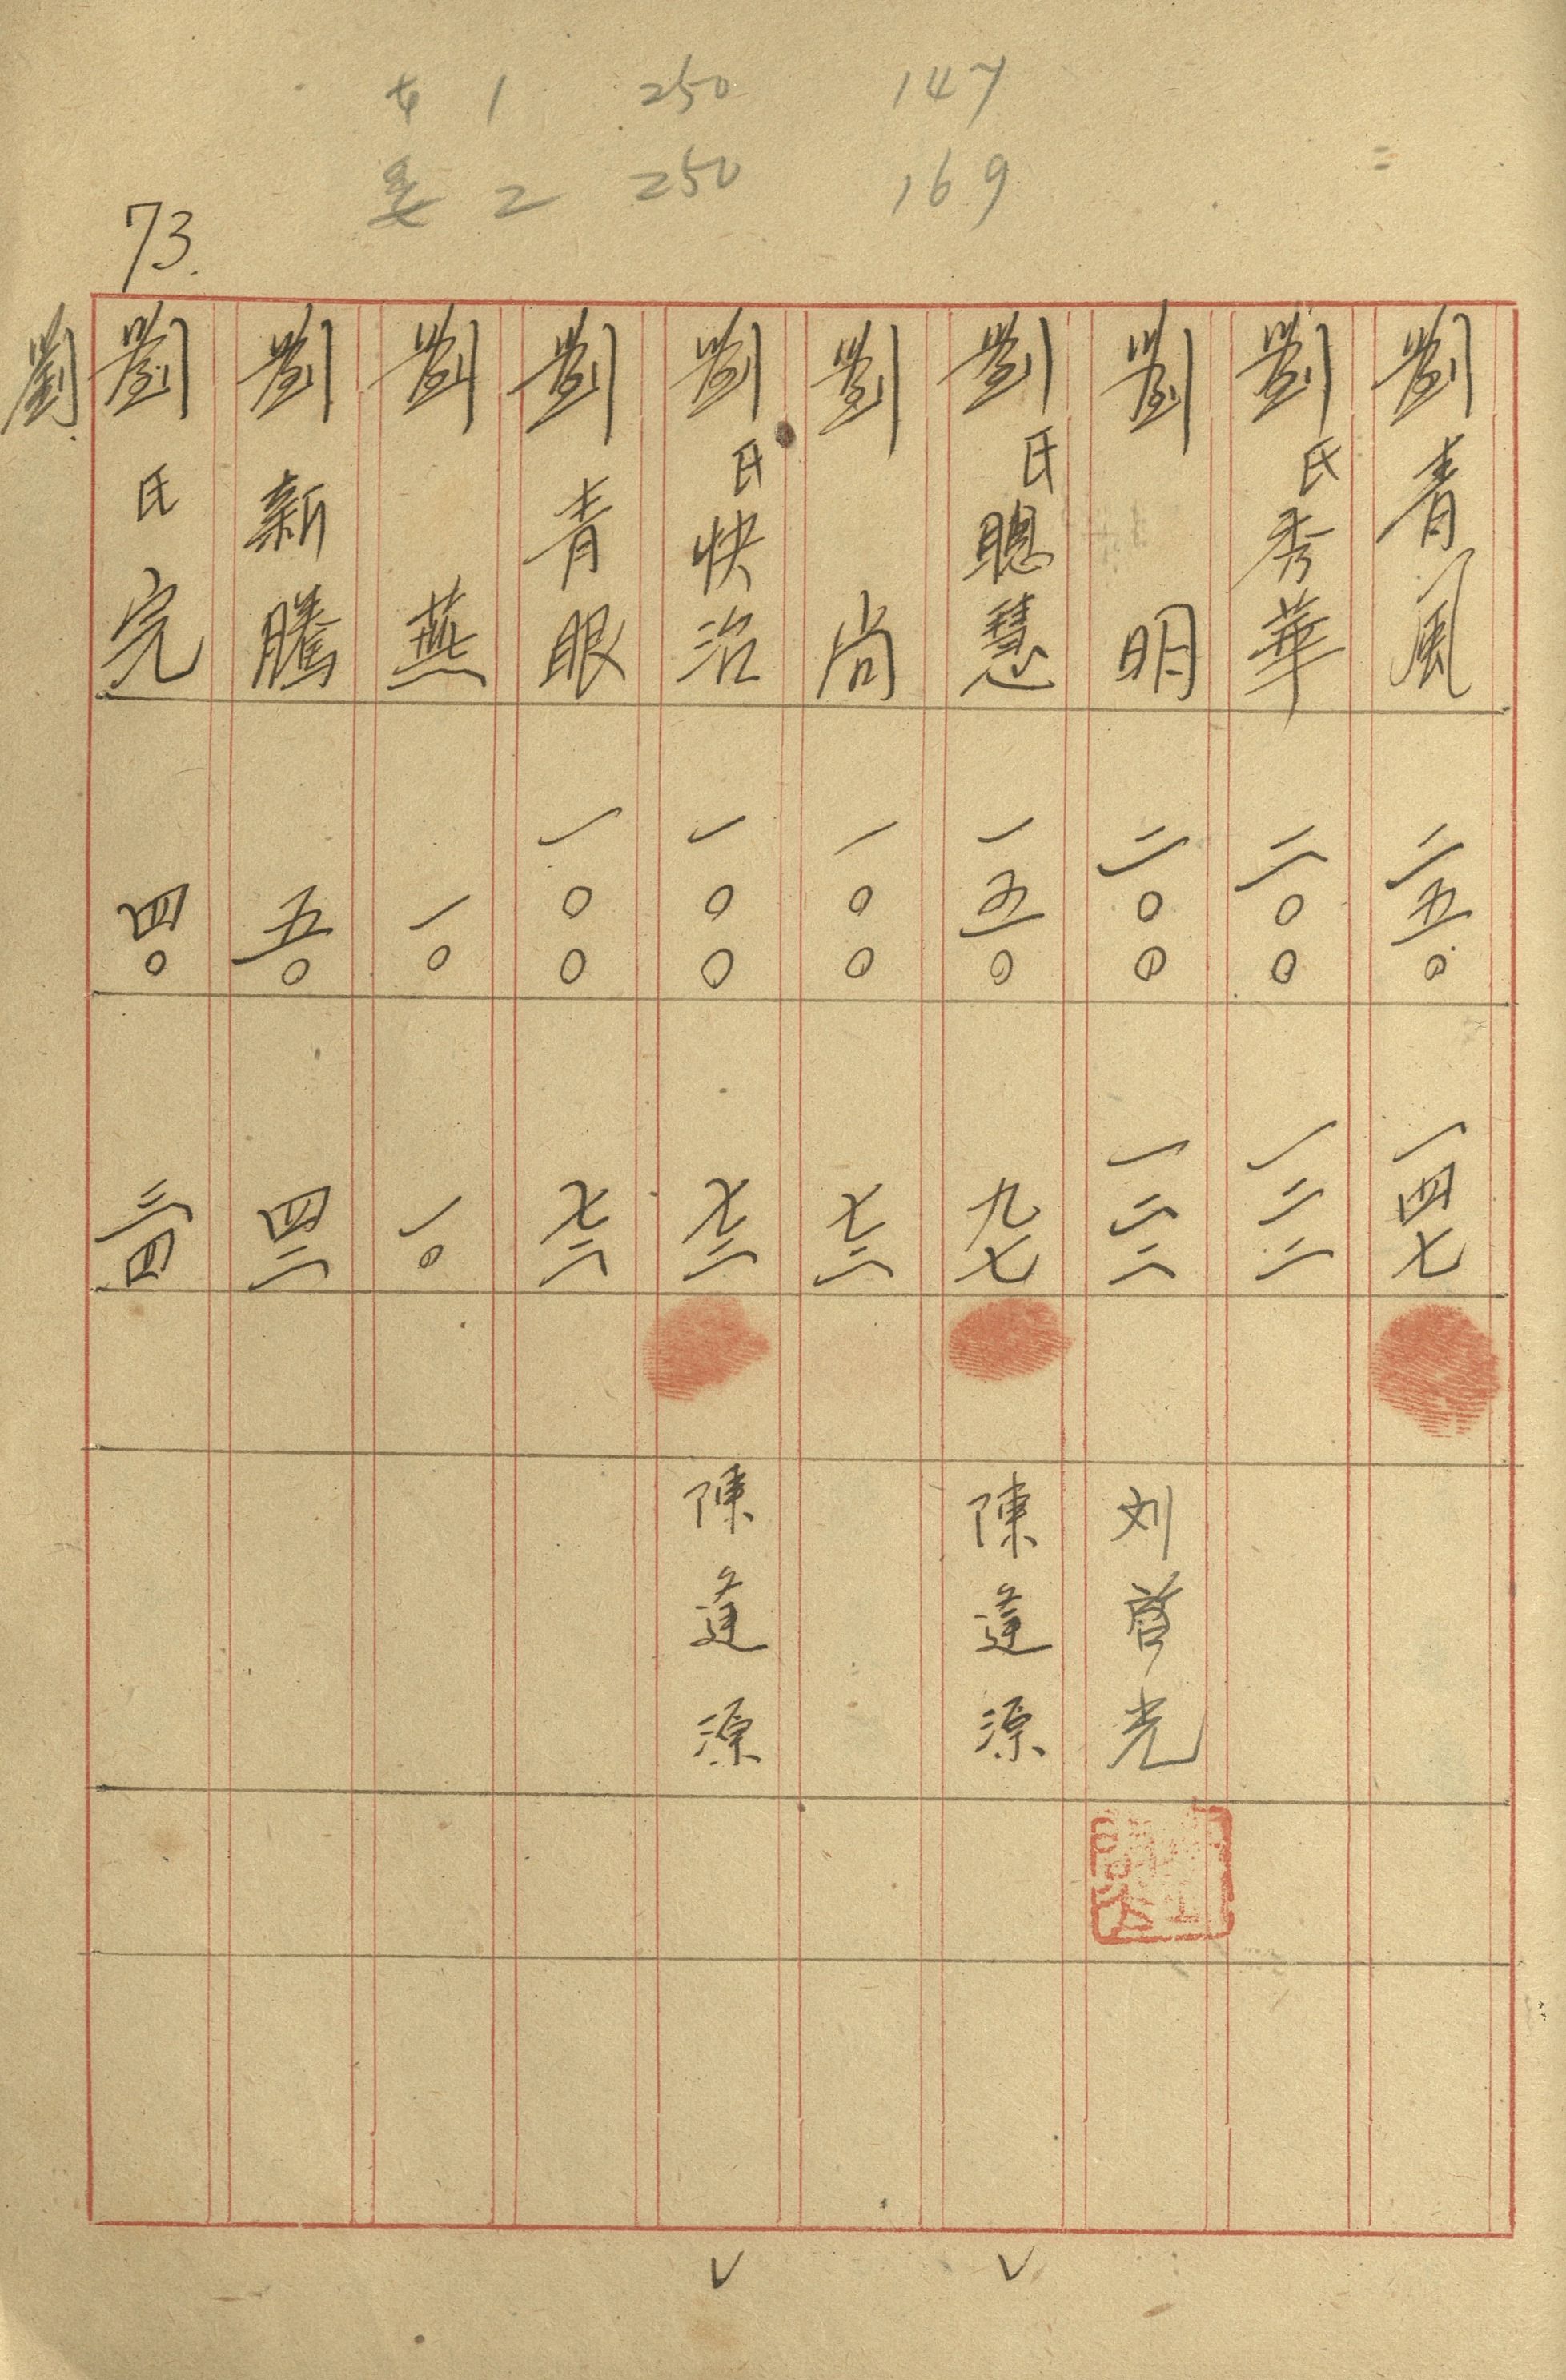 1 250 147
2 250 169
73.
劉青風 二五〇 一四七
劉氏秀華 二〇〇 一二二
劉明 二〇〇 一二二 刘啓光
劉氏聰慧 一五〇 九七 陳逢源
劉尚 一〇〇 七二
劉氏快治 一〇〇 七二 陳逢源
劉青眼 一〇〇 七二
劉燕 一〇 一〇
劉新騰 五〇 四二
劉氏完 四〇 三四
劉